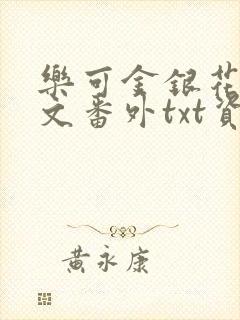 樂可金銀花
文番外txt資
黃永康